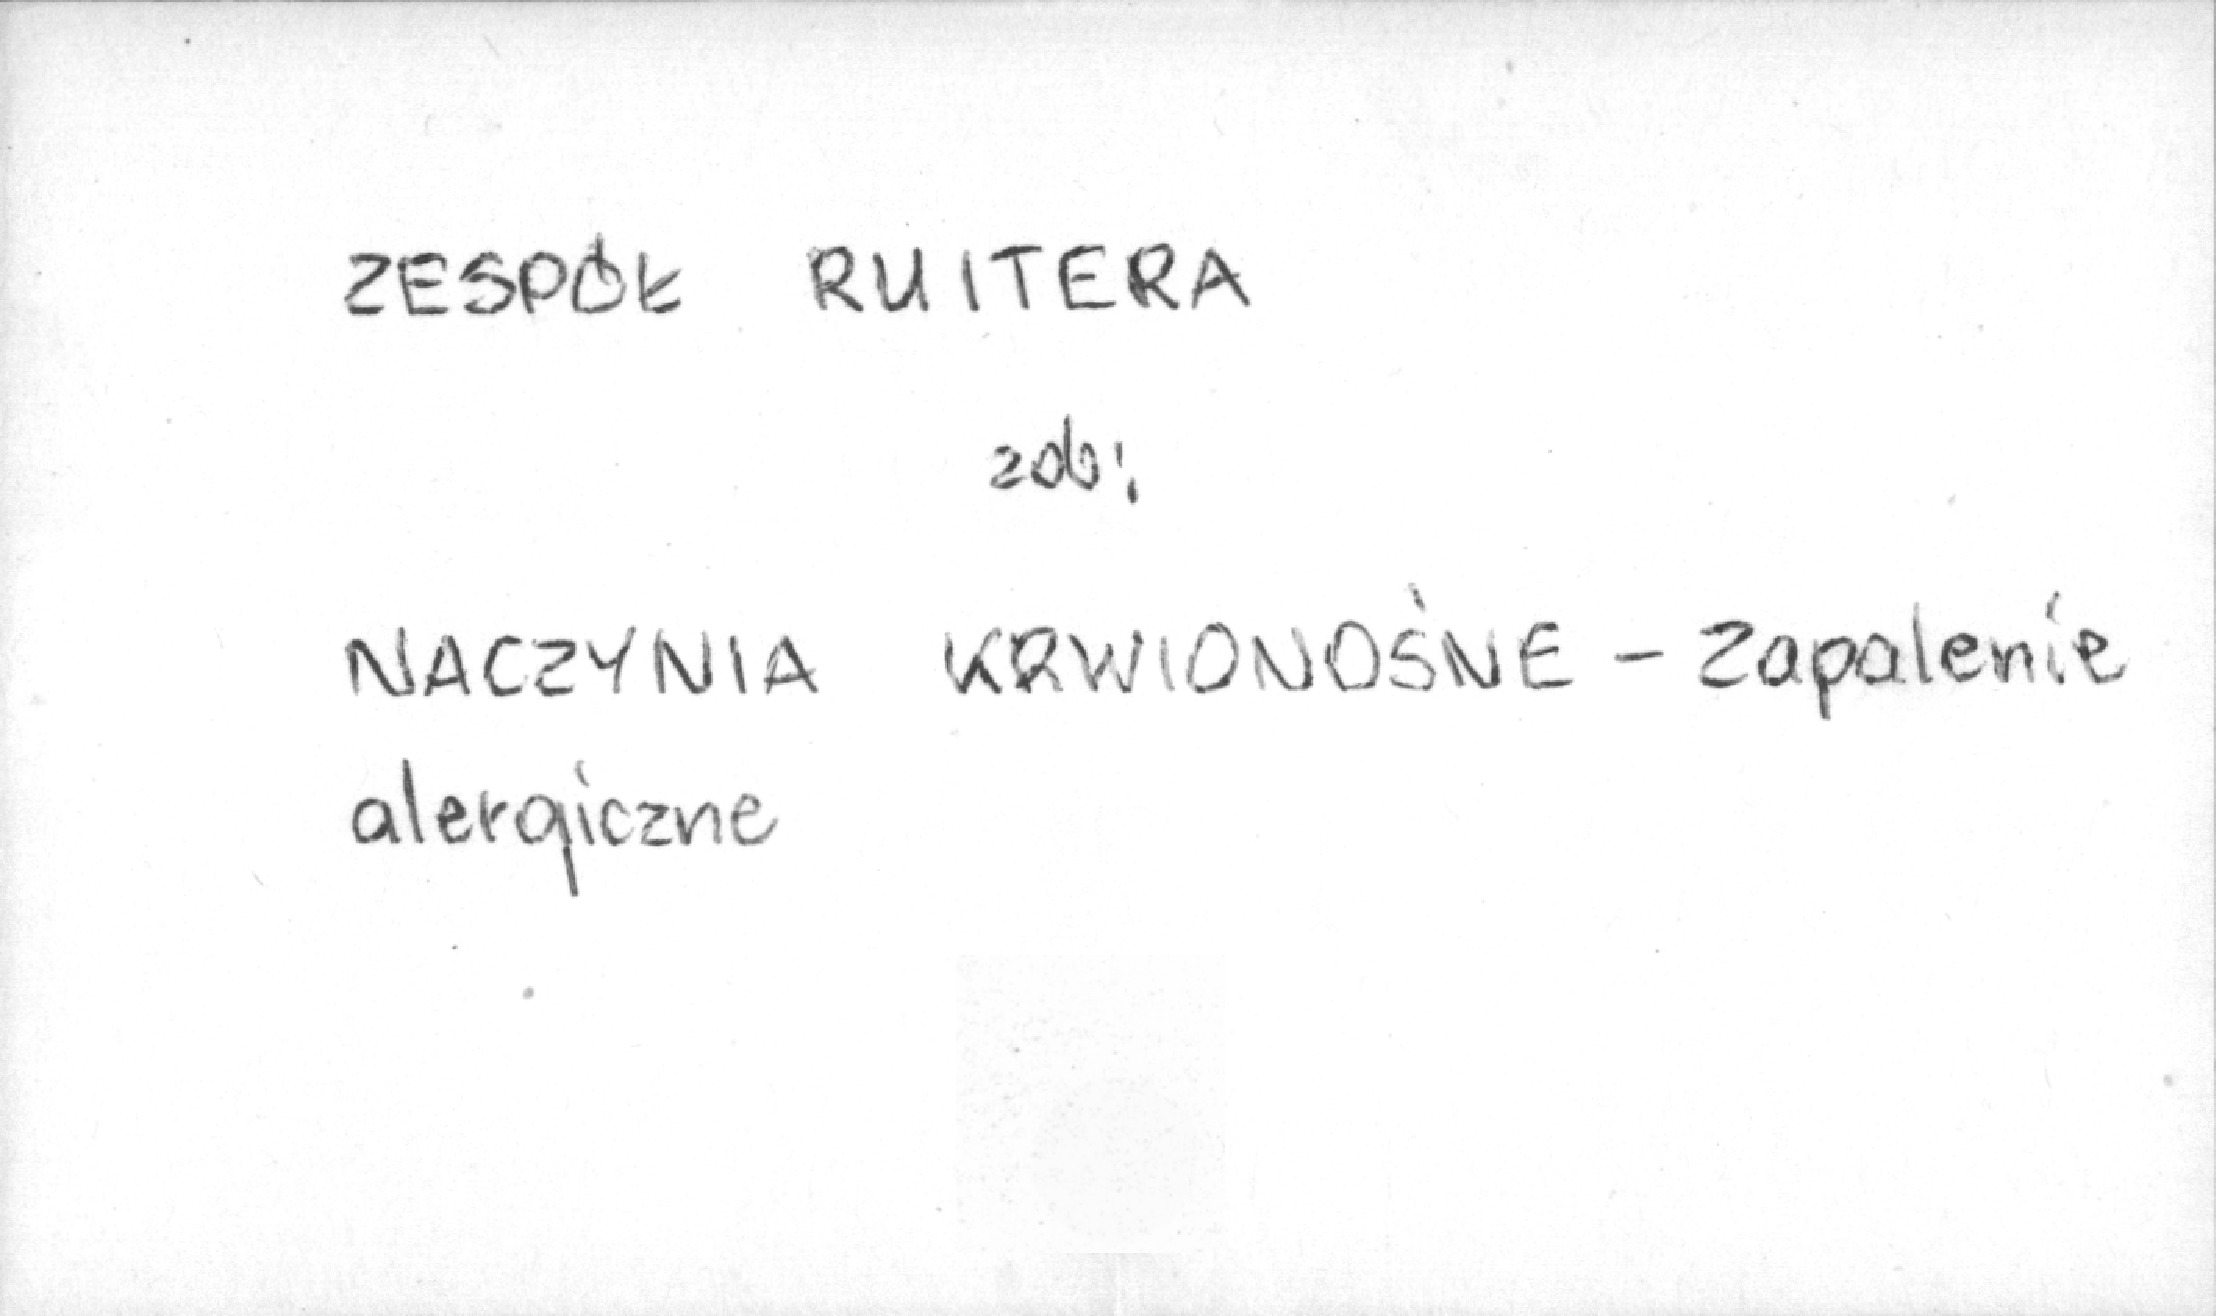 ZESPÓŁ RUITERA
zob:
NACZYNIA KRWIONOŚNE - Zapalenie
alergiczne